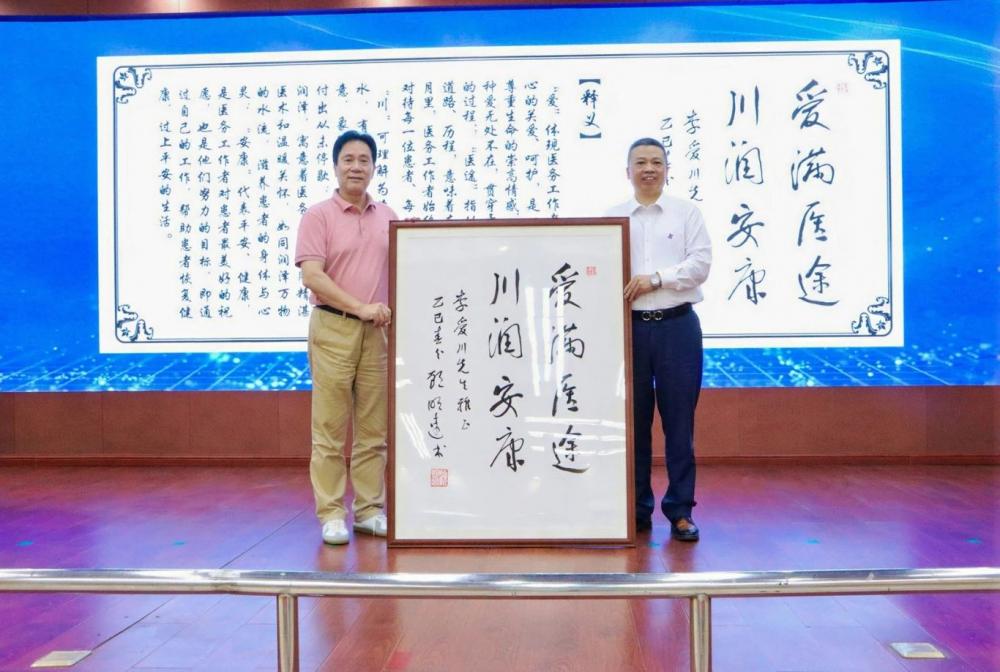 爱满医途
川润安康
李爱川先
乙巳春
【释义】
“爱”：体现医务工作
心的关爱、呵护，是
尊重生命的崇高情感，
种爱无处不在，贯穿
的过程；“医途”：指
道路、历程，意味着
月里，医务工作者始
对待每一位患者、每
“川”：可理解为
水，有
意，象
付出从未停歇；
润泽，寓意着医务 用精湛
医术和温暖关怀，如同润泽万物
的水流，滋养患者的身体与心
灵；“安康”：代表平安、健康，
是医务工作者对患者最美好的祝
愿，也是他们努力的目标，即通
过自己的工作，帮助患者恢复健
康，过上平安的生活。
爱满医途
川润安康
李爱川先生雅正
乙巳春分 顾明远书